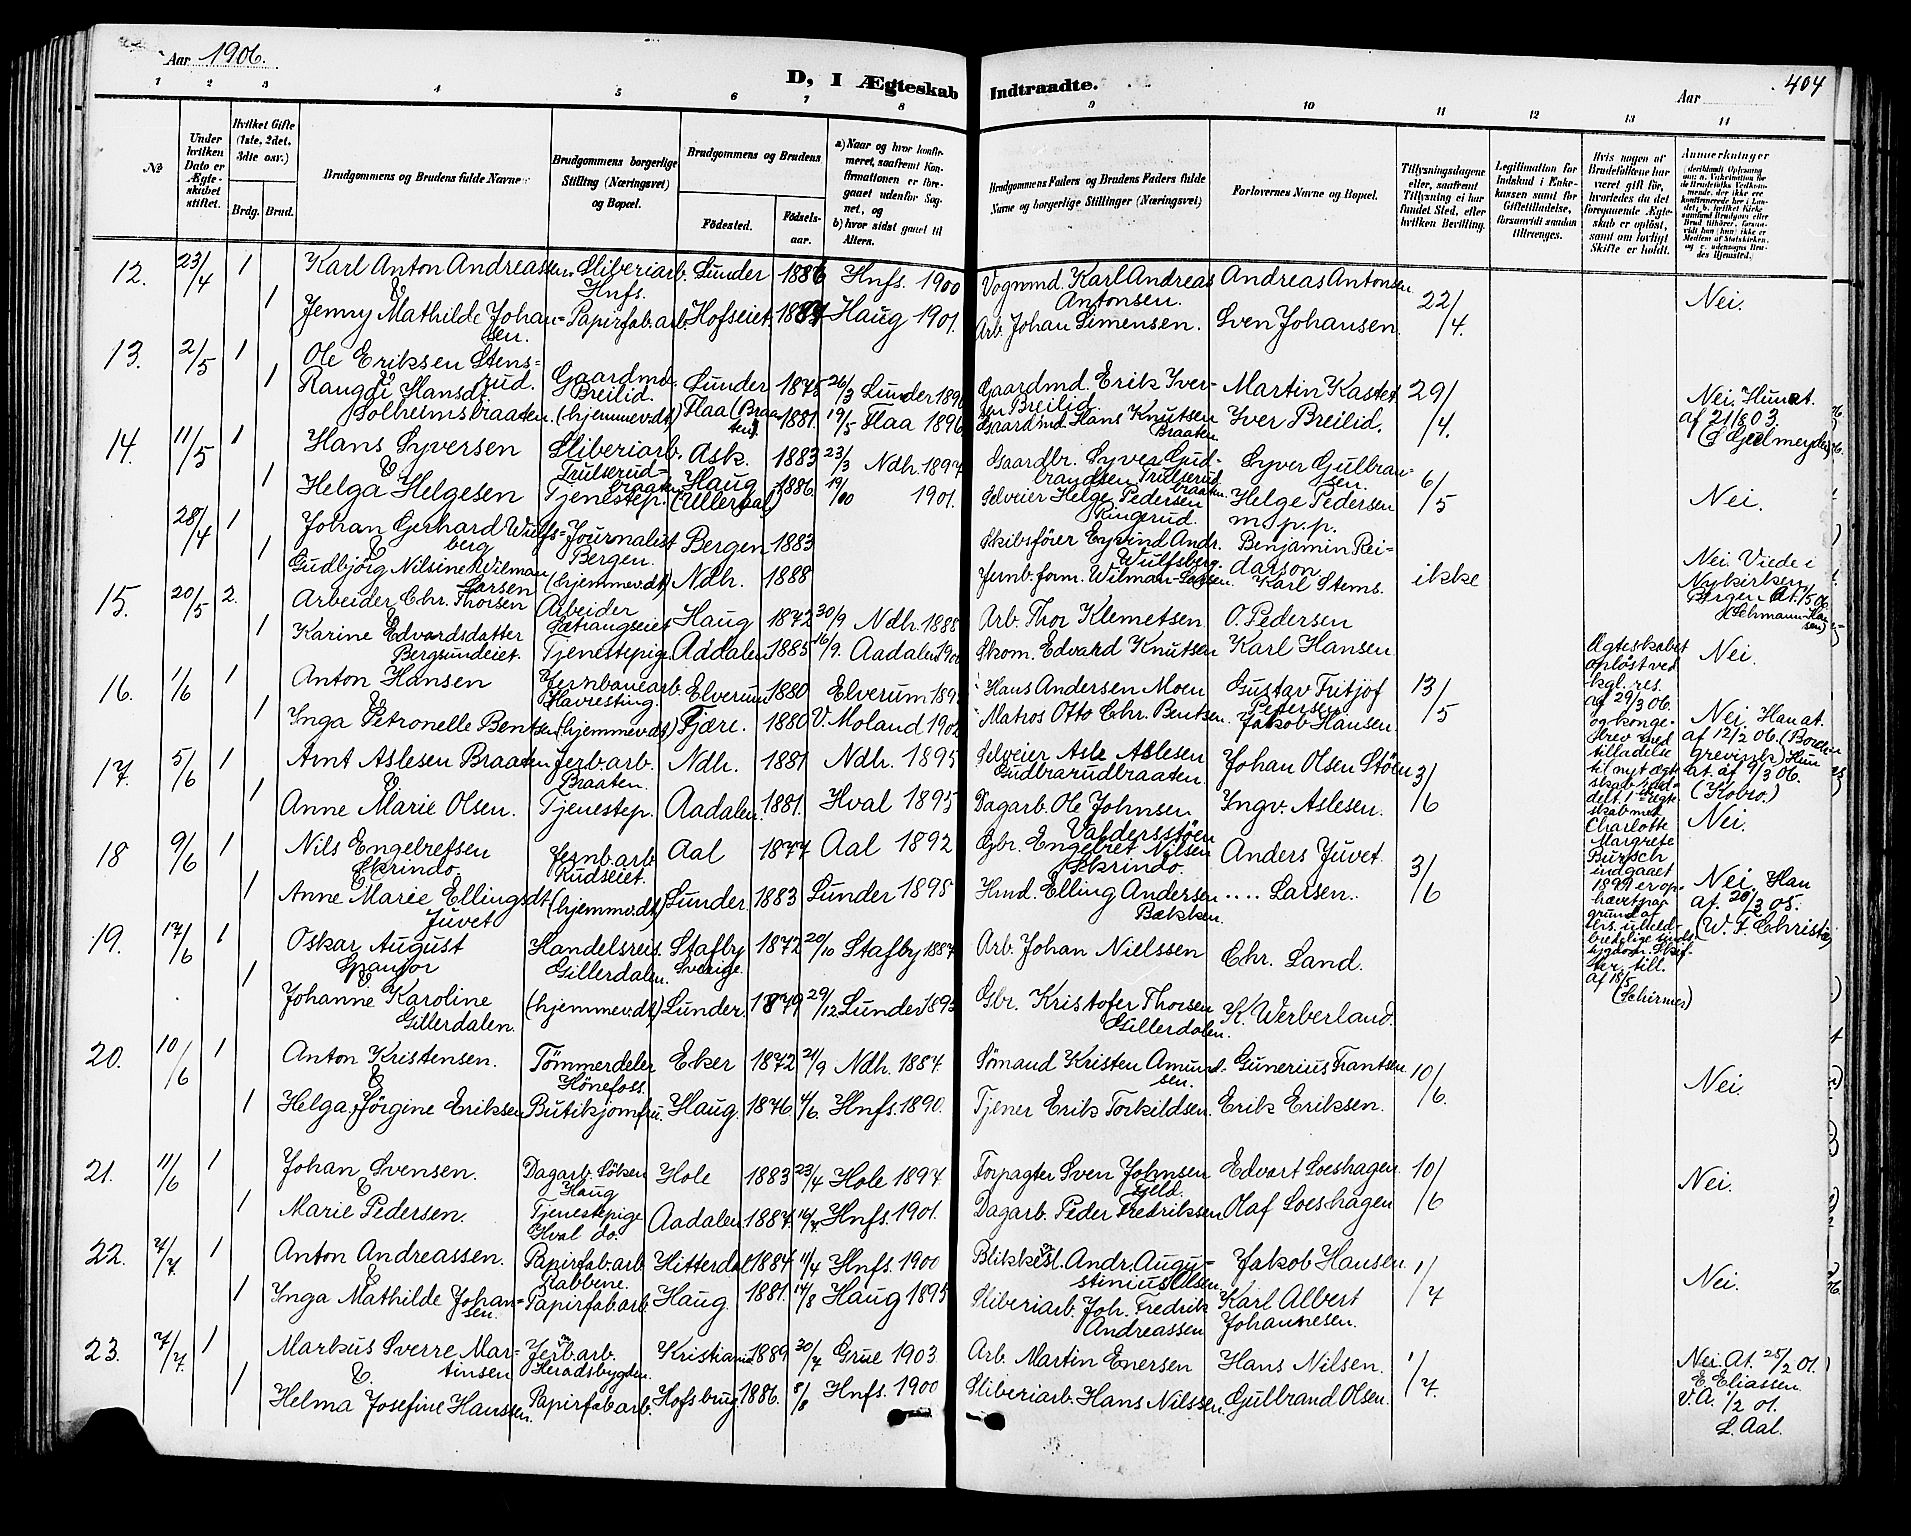 Aar 1906.
D, I Ægteskab Indtraadte.
Aar 404
1 2 3 4 5 6 7 8 9 10 11 12 13 14
№
Under hvilken Dato er Ægteskabet stiftet.
Hvilket Gifte (1ste, 2det, 3die osv.)
Brdg. Brud.
Brudgommens og Brudens fulde Navne
Brudgommens borgerlige Stilling (Næringsvei) og Bopæl.
Brudgommens og Brudens
Fødested. Fødselsaar.
a) Naar og hvor konfirmeret, saafremt Konfirmationen er foregaaet udenfor Sognet, og
b) hvor sidst gaaet til Alters.
Brudgommens Faders og Brudens Faders fulde Navne og borgerlige Stillinger (Næringsvei)
Forlovernes Navne og Bopæl.
Tillysningsdagene eller, saafremt Tillysning ei har fundet Sted, efter hvilken Bevilling.
Legitimation for Indskud i Enkekassen samt for Giftetilladelse, forsaavidt saadan tiltrænges.
Hvis nogen af Brudefolkene har været gift før, hvorledes da det foregaaende Ægteskab er opløst, samt om lovligt Skifte er holdt.
Anmerkninger
12. 23/4 1 Karl Anton Andreassen Sliberiarb. Lunder 1886 Hnfs. 1900 Vognmd. Karl Andreas Andreas Antonsen
& Hnfs. Antonsen. 22/4. Nei.
1 Jenny Mathilde Johansen. Papirfab.arb. Hofseiet 1884 Haug 1901. Arb. Johan Simensen. Sven Johansen.
13. 2/5 1 Ole Eriksen Stensrud. Gaardmd. Breilid. Lunder 1875 26/3 Lunder 1890 Gaardmd. Erik Iversen Breilid. Martin Kastet 29/4.
1 Rangdi Hansdt. Solheimsbraaten (hjemmev.dt) Flaa (Braaten) 1881. 19/5 Flaa 1896 Gaardmd. Hans Knutsen Braaten Iver Breilid. Nei. Hun at. af 21/8 03.
14. 11/5 1 Hans Syversen Sliberiarb. Ask. 1883 23/3 Ndh. 1897 Gaardbr. Syver Gudbrandsen Trulserudbraaten. Syver Gulbransen. 6/5
& Trulserudbraaten
1 Helga Helgesen Tjenestep. Haug (Gillerdal) 1886. 19/10 1901. Selveier Helge Pedersen Ringerud. Helge Pedersen m.p.p. Nei.
28/4 1 Johan Gerhard Wulfsberg Journalist Bergen. Bergen 1883 Skibsfører Eyvind Andr. Wulfsberg. Benjamin Reidarson
&
1 Gudbjörg Nilsine Wilman Larsen (hjemmev.dt) Ndh. 1888 Jernb.form. Wilman Larsen. Karl Stems. ikke Nei Viede i Nykirken Bergen
15. 20/5 2. Arbeider Chr. Thorsen Arbeider Haug 1872 30/9 Ndh. 1888 Arb. Thor Klemetsen O. Pedersen
&
1 Karine Edvardsdatter Bergsundeiet. Tjenestepig. Aadalen 1885 16/9. Aadalen 1900 Skom. Edvard Knutsen Karl Hansen Nei.
Ægteskabet opløst ved kgl. res. af 29/3 06. og kongebrev med tilladelse til nyt ægteskab meddelt. 1ste Ægteskab med Charlotte Margrete Bursch indgaaet 1899 er ophævet paa grund af
16. 1/6 1 Anton Hansen Jernbanearb. Havresting. Elverum 1880 Elverum 189 Hans Andersen Moen Gustav Fritjof Pedersen 13/5
&
1 Inga Petronelle Bentsen (hjemmev.dt) Fjære. 1880 V. Moland 190 Matros Otto Chr. Bentsen. Jakob Hansen. Nei. Han at. af 12/2 06. Hun at. af 9/3 06. (Kobro.)
17. 5/6 1 Arnt Aslesen Braaten Jerb.arb. Braaten. Ndh. 1881 Ndh. 1895 Selveier Asle Aslesen Gudbrarudbraaten. Johan Olsen Støen 3/6
&
1 Anne Marie Olsen. Tjenestep. Aadalen. 1881. Hval 1895 Dagarb. Ole Johnsen Valdersstøen Ingv. Aslesen. Nei.
18 9/6 1 Nils Engebretsen Skrindo. Jernb.arb. Rudseiet. Aal 1877 Aal 1892 Gbr. Engebret Nilsen Skrindo. Anders Juvet. 3/6
&
1 Anne Marie Ellingsdt Juvet (hjemmev.dt) Lunder. 1883 Lunder 1898 Hmd. Elling Andersen Bækken. .... Larsen. Nei. Han af. 20/3 05. (W. F. Christie
19. 17/6 1 Oskar August Spanfor Handelsreis. Gillerdalen. Stafby Sverige. 1872 20/10 Stafby 1887 Arb. Johan Nielssen Chr. Land.
&
1 Johanne Karoline Gillerdalen. (hjemmev.dt) Lunder. 1879 29/12 Lunder 1895 Gbr. Kristofer Thorsen Gillerdalen. K. Werberland. (Schirmes)
20. 10/6 1 Anton Kristensen. Tömmerdeler Hönefoss. Eker 1872 21/9 Ndh. 1887. Sömand Kristen Amundsen. Gunerius Frantsen 10/6.
&
1 Helga Jörgine Eriksen Butikjomfru. Haug. 1876 4/6. Hnfs. 1890. Tjener Erik Torkildsen. Erik Eriksen. Nei.
21. 11/6 1 Johan Svensen. Dagarb. Söken Haug Hole 1883 23/4 Hole 1897. Forpagter Sven Johnsen Fjeld. Edvart Loeshagen. 10/6
&
1 Marie Pedersen. Tjenestepige Hval do. Aadalen 1887. 16/4. Hnfs. 1901. Dagarb. Peder Fredriksen Olaf Loeshagen Nei.
22. 7/7. 1 Anton Andreassen. Papirfab.arb. Rabbene. Hitterdal 1884 11/4 Hnfs. 1900 Blikkesl. Andr. Augustinius Olsen. Jakob Hansen. 1/7
&
1 Inga Mathilde Johansen. Papirfab.arb. Haug. 1881. 14/8 Haug 1895 Sliberiarb. Joh. Fredrik Andreassen Karl Albert Johannesen. Nei.
23. 7/7. 1 Markus Sverre Martinsen Jernb.arb. Heradsbygden. Kristiania 1889 30/7 Grue 1903. Arb. Martin Enersen Hans Nilsen. 1/7.
&
1 Helma Josefine Hanssen. Papirfab.arb. Hofsbrug 1886. 8/8 Hnfs. 1900 Sliberiarb. Hans Nilssen. Gulbrand Olsen. Nei. At. 25/2 01. E. Eliassen. V.A. 1/2 01. L. Aal.